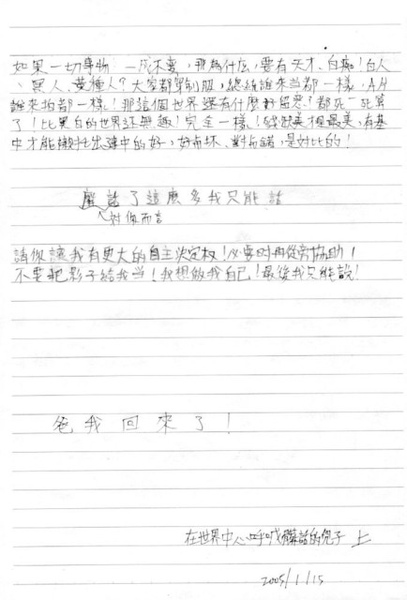 如果一切事物 一成不變,那為什么,要有天才、白痴!白人
、黑人、黃種人?大家都穿制服,總統誰來當都一樣,AA
誰來拍都一樣!那這個世界還有什麼好留恋?都死一死算
了!比黑白的世界还無趣!完全一樣! 最美,有基
中才能襯托出建中的好,好有坏、對有錯,是对比的!
廢話了這麼多我只能說
对你而言
請你讓我有更大的自主決定权!必要时再從旁協助!
不要把影子給我当!我想做我自己!最後我只能說!
爸我回來了!
在世界中心呼喊 話的兒子 上
2005/1/15